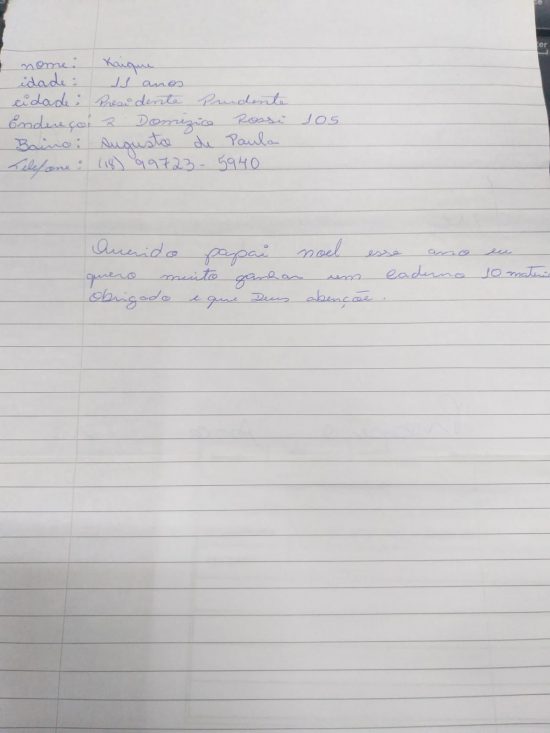 nome: Kaique
idade: 11 anos
cidade: Presidente Prudente
Endereço: R Domizio Rossi 105
Bairro: Augusto de Paula
Telefone: (18) 99723-5940
Querido papai noel esse ano eu
quero muito ganhar um caderno 10 matéri
Obrigado e que Deus abençõe.